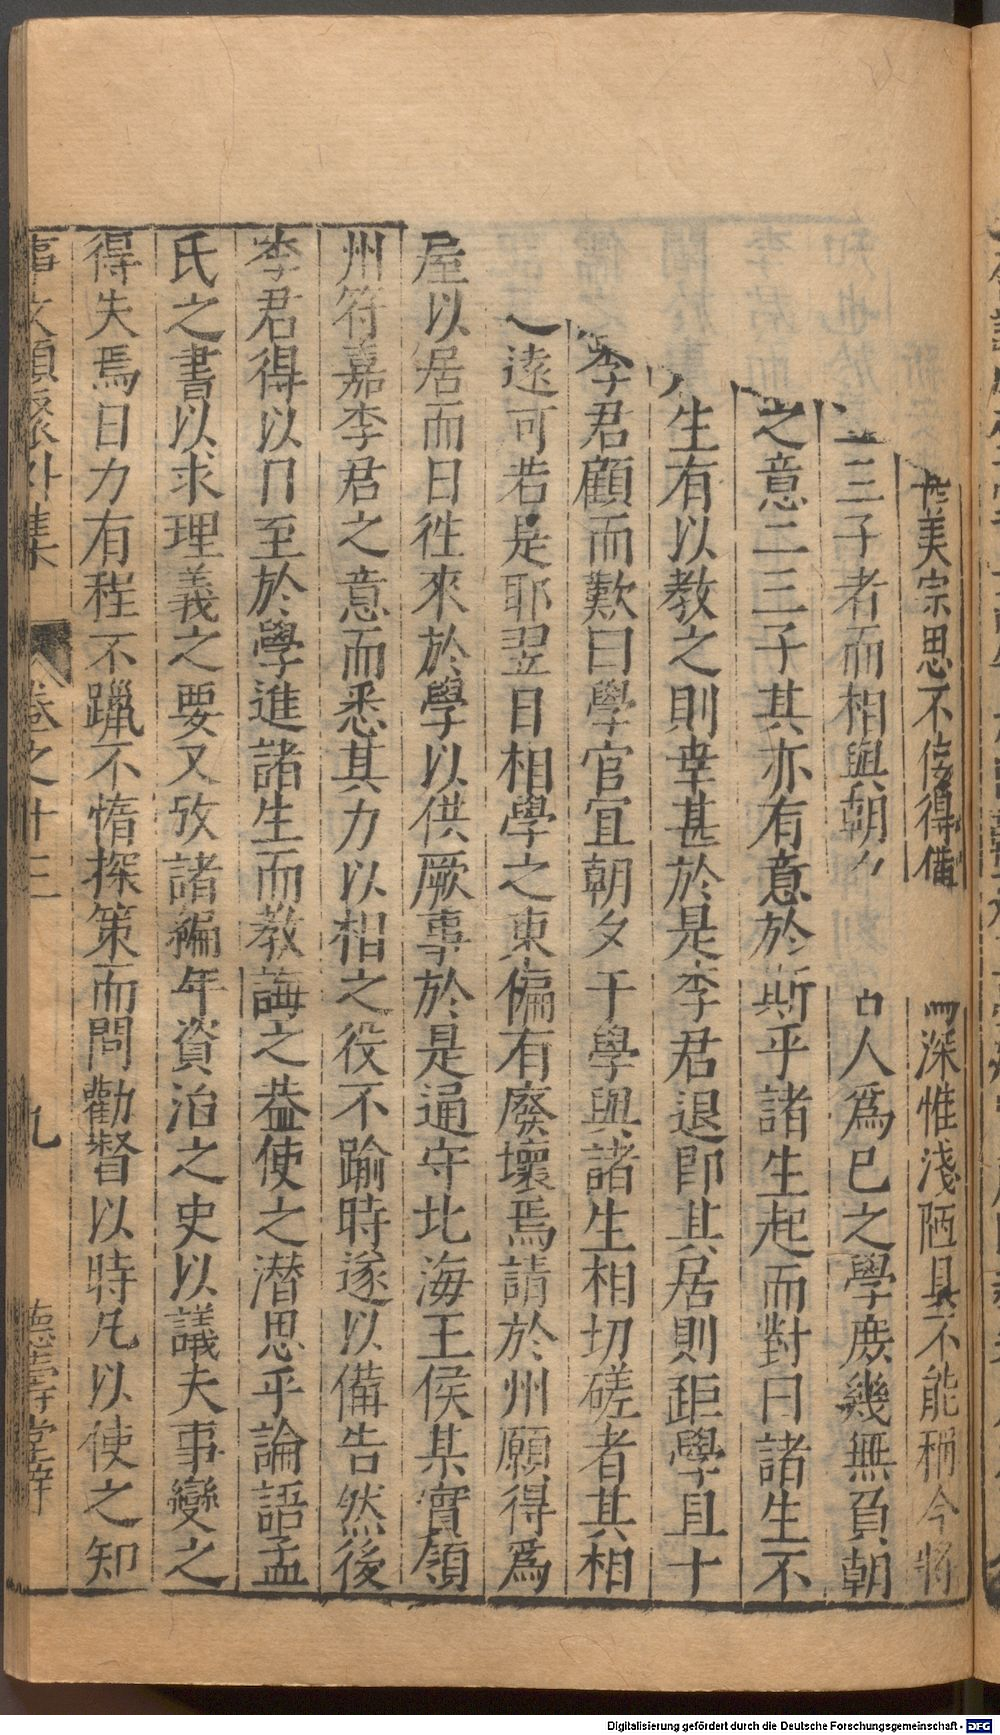 美宗思不佞得備 深惟淺陋具不能稱今將
二三子者而相與朝夕 古人爲已之學庻幾無負朝
之意二三子其亦有意於斯乎諸生起而對曰諸生不
生有以教之則幸甚於是李君退即其居則距學且十
李君顧而歎曰學官宜朝夕于學與諸生相切磋者其相
遠可若是耶翌日相學之東偏有廢壞焉請於州願得爲
屋以居而日徃來於學以供厥事於是通守北海王侯某實領
州符嘉李君之意而悉其力以相之役不踰時遂以備告然後
李君得以日至於學進諸生而教誨之葢使之潜思乎論語孟
氏之書以求理義之要又攷諸編年資治之史以議夫事變之
得失焉日力有程不躐不惰探策而問勸督以時凡以使之知
事文類聚外集 卷之十三 九 德壽堂梓
Digitalisierung gefördert durch die Deutsche Forschungsgemeinschaft - DFG